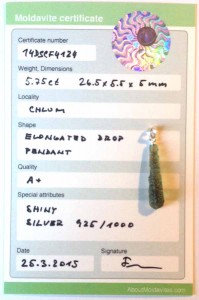 Moldavite certificate
Certificate number
14DSCF4124
Weight, Dimensions
5.75ct 26.5x5.5x5mm
Locality
CHLUM
Shape
ELONGATED DROP
PENDANT
Quality
A+
Special attributes
SHINY
SILVER 925/1000
Date
Signature
25.3.2015